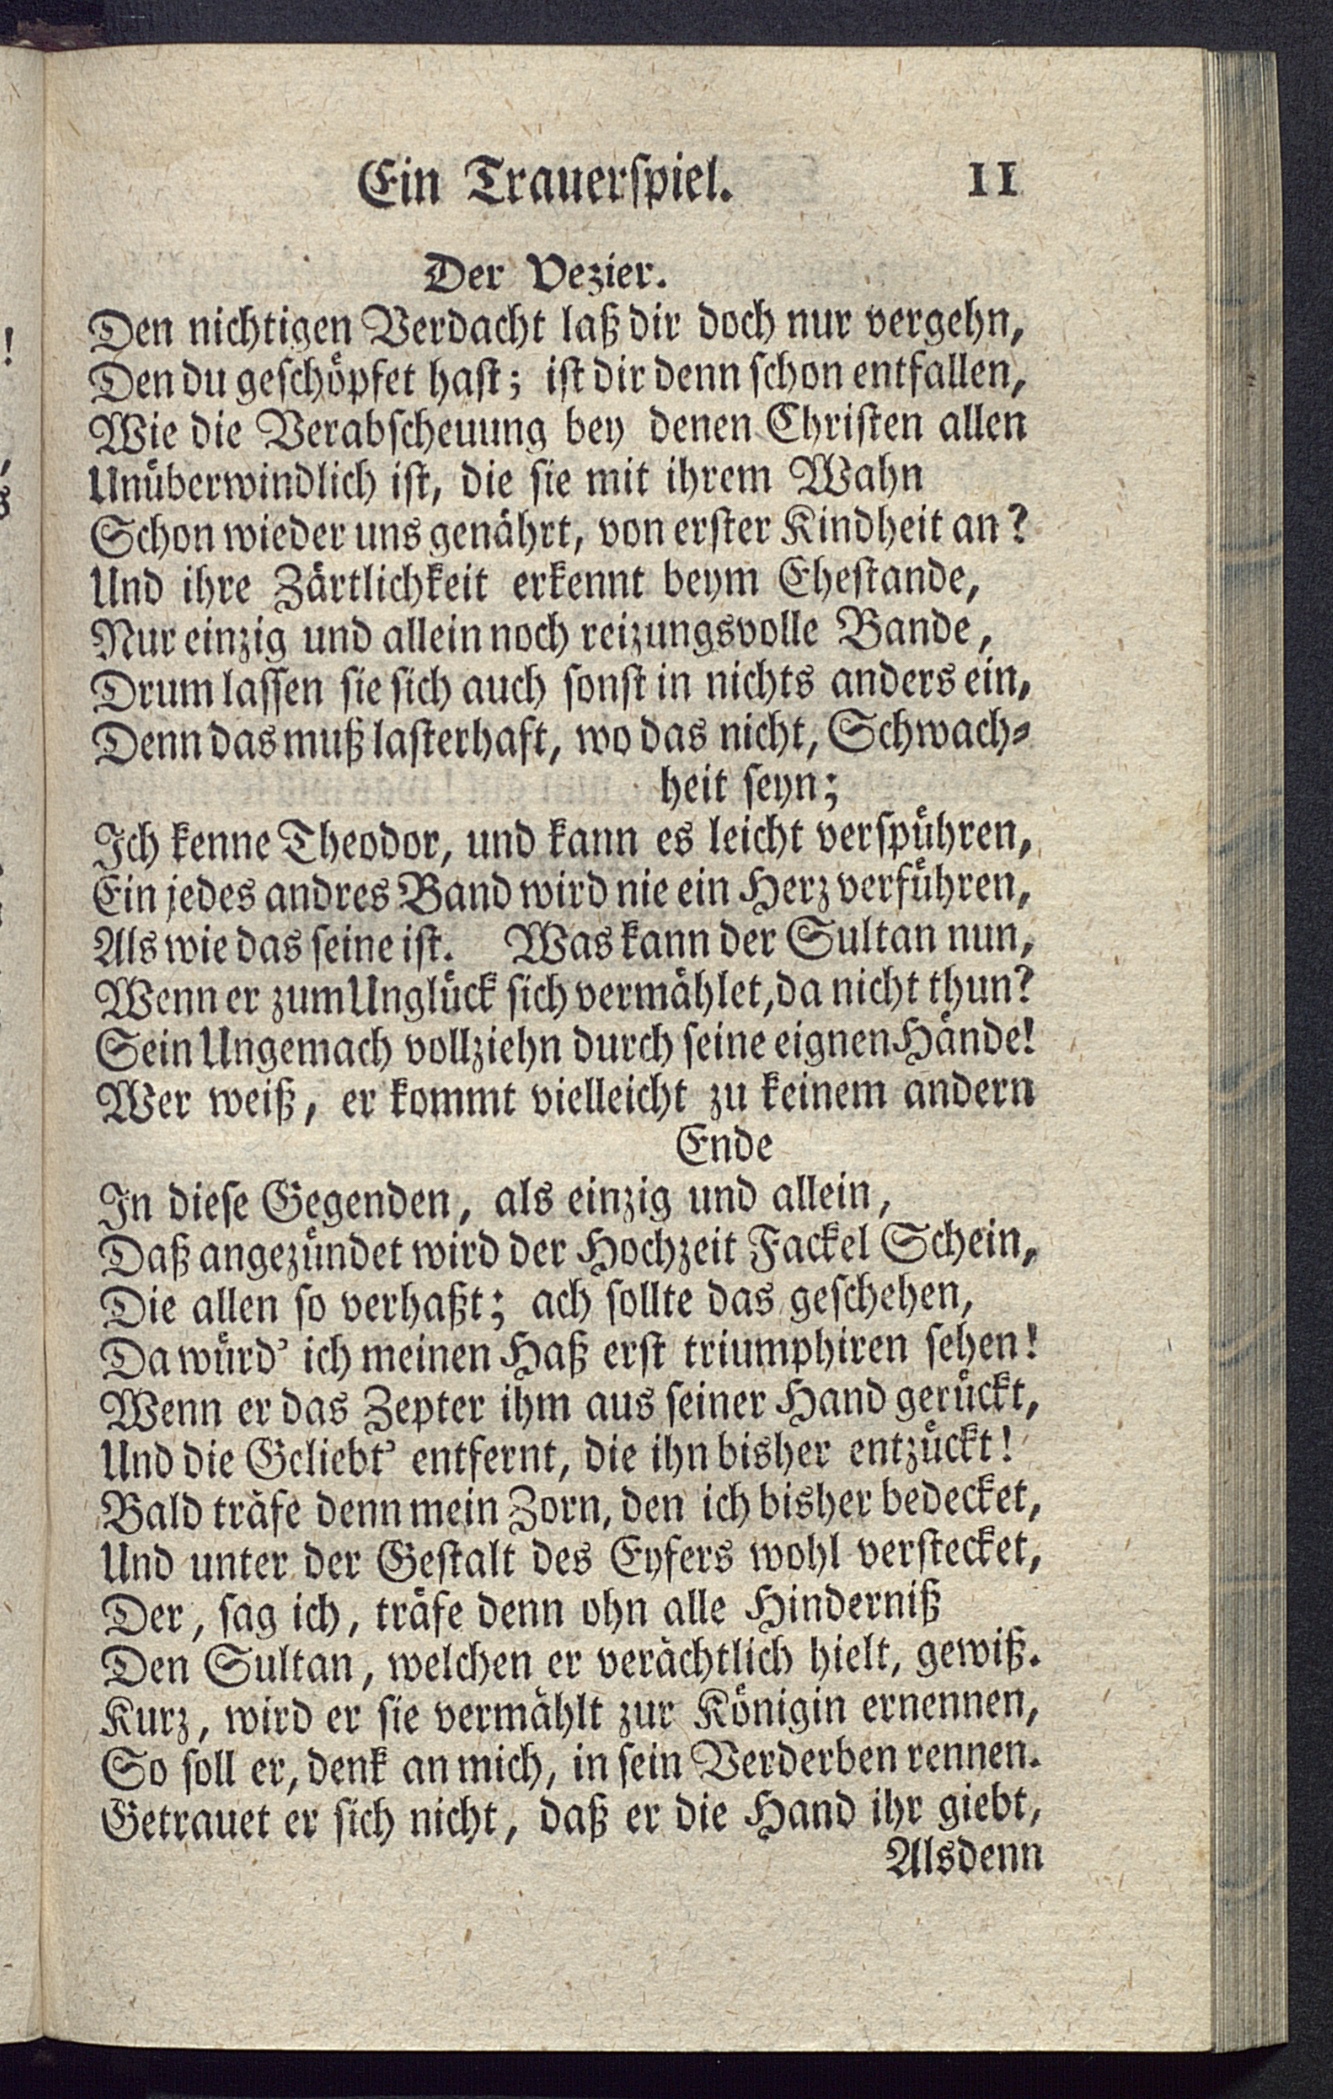 Ein Trauerspiel. 11
Der Vezier.
Den nichtigen Verdacht laß dir doch nur vergehn,
Den du geschöpfet hast; ist dir denn schon entfallen,
Wie die Verabscheuung bey denen Christen allen
Unüberwindlich ist, die sie mit ihrem Wahn
Schon wieder uns genährt, von erster Kindheit an?
Und ihre Zärtlichkeit erkennt beym Ehestande,
Nur einzig und allein noch reizungsvolle Bande,
Drum lassen sie sich auch sonst in nichts anders ein,
Denn das muß lasterhaft, wo das nicht, Schwach-
heit seyn;
Ich kenne Theodor, und kann es leicht verspühren,
Ein jedes andres Band wird nie ein Herz verführen,
Als wie das seine ist. Was kann der Sultan nun,
Wenn er zum Unglück sich vermählet, da nicht thun?
Sein Ungemach vollziehn durch seine eignen Hände!
Wer weiß, er kommt vielleicht zu keinem andern
Ende
In diese Gegenden, als einzig und allein,
Daß angezündet wird der Hochzeit Fackel Schein,
Die allen so verhaßt; ach sollte das geschehen,
Da würd' ich meinen Haß erst triumphiren sehen!
Wenn er das Zepter ihm aus seiner Hand gerückt,
Und die Geliebt' entfernt, die ihn bisher entzückt!
Bald träfe denn mein Zorn, den ich bisher bedecket,
Und unter der Gestalt des Eyfers wohl verstecket,
Der, sag ich, träfe denn ohn alle Hinderniß
Den Sultan, welchen er verächtlich hielt, gewiß.
Kurz, wird er sie vermählt zur Königin ernennen,
So soll er, denk an mich, in sein Verderben rennen.
Getrauet er sich nicht, daß er die Hand ihr giebt,
Alsdenn